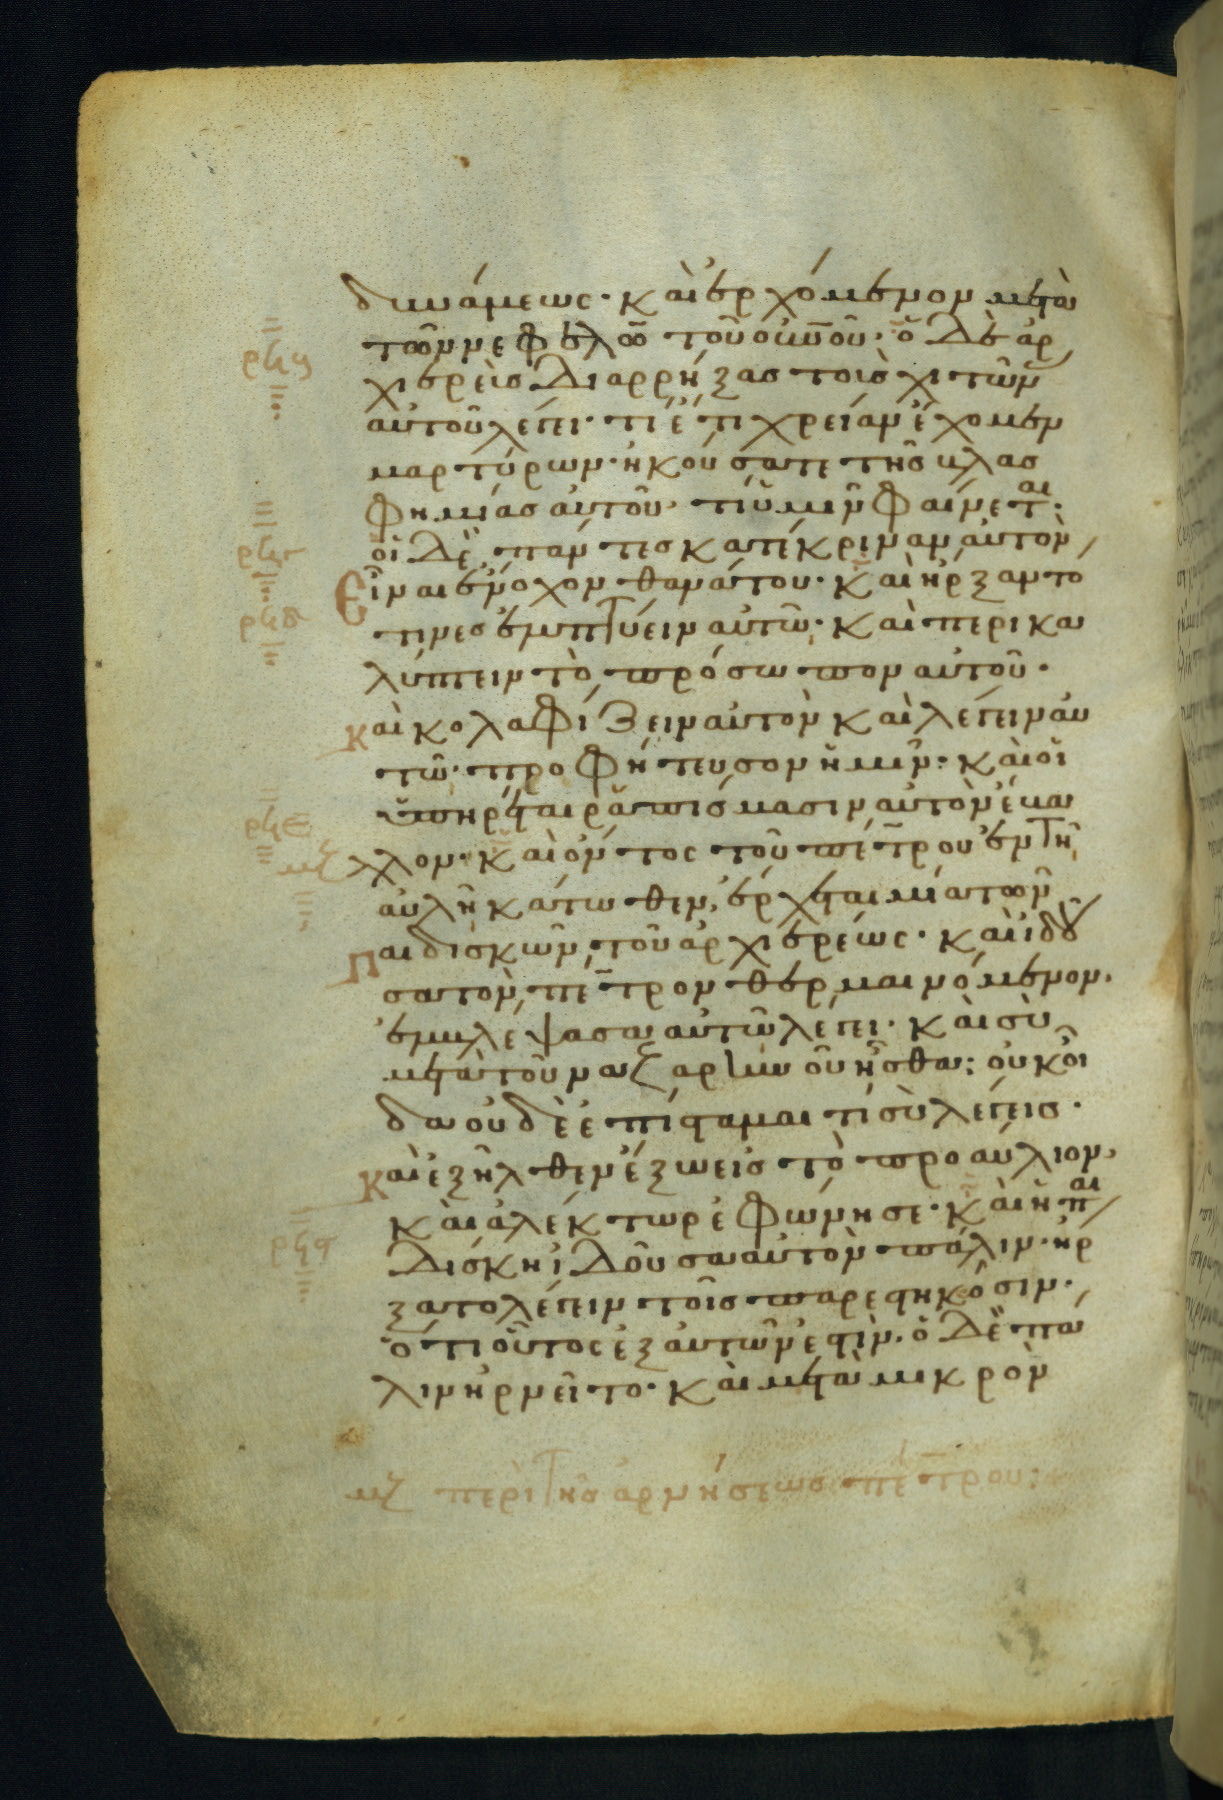 δυνάμεως· καὶ ἐρχόμενον μετὰ
τῶν νεφελῶν τοῦ οὐνοῦ· ὁ δὲ ἀρ
χιερεὺς διαρρήξας τοὺς χιτῶν
αὐτοῦ λέγει· τί ἔτι χρείαν ἔχομεν
μαρτύρων· ἠκούσατε τῆς βλασ
φημίας αὐτοῦ· τί ὑμῖν φαίνεται·
οἱ δὲ πάντες κατέκριναν αὐτὸν
Εἶναι ἔνοχον θανάτου· καὶ ἤρξαντο
τινὲς ἐμπτύειν αὐτῶ· καὶ περικα
λύπτειν τὸ πρόσωπον αὐτοῦ·
Καὶ κολαφίζειν αὐτὸν καὶ λέγειν αὐ
τῶ· προφήτευσον ἡμῖν· καὶ οἱ
ὑπηρέται ραπίσμασιν αὐτὸν ἔβα
λλον· καὶ ὄντος τοῦ πέτρου ἐν τῆ
αὐλῆ κάτωθεν, ἔρχεται μία τῶν
Παιδισκῶν τοῦ ἀρχιερέως· καὶ ἰδοῦ
σα τὸν πέτρον θερμαινόμενον,
ἐμβλέψασα αὐτῶ λέγει· καὶ σὺ
μετὰ τοῦ ναζαρινοῦ ἦσθα; οὐκ οἶ
δα οὐδὲ ἐπίσταμαι τί σὺ λέγεις·
Καὶ ἐξῆλθεν ἔξω εἰς τὸ προαύλιον,
καὶ ἀλέκτωρ ἐφώνησε· καὶ ἡ παι
δίσκη ἰδοῦσα αὐτὸν πάλιν· ἤρ
ξατο λέγειν τοῖς παρεστηκόσιν·
ὅτι οὗτος ἐξ αὐτῶν ἐστίν· ὁ δὲ πά
λιν ἠρνεῖτο· καὶ μετὰ μικρὸν
μζ περὶ τῆς ἀρνήσεως πέτρου: